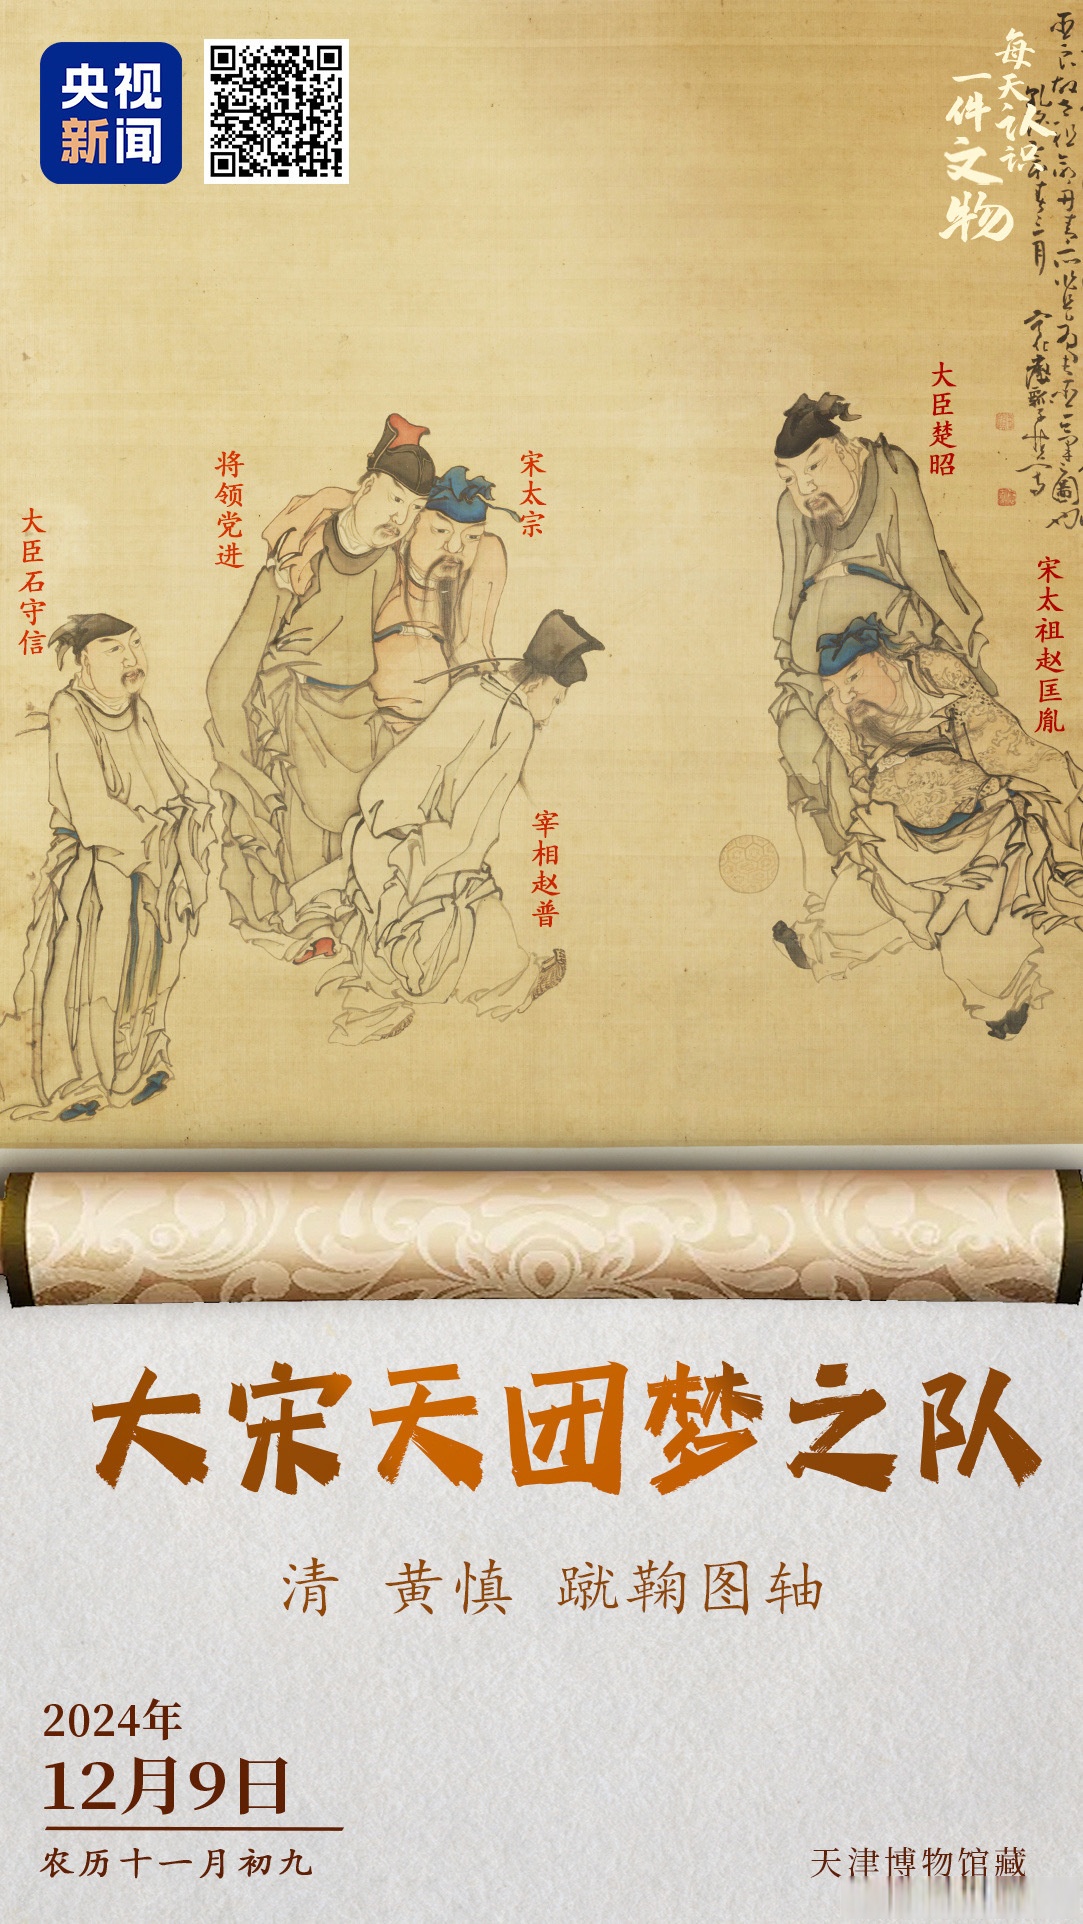 央视
新闻
每天认识
一件文物
大臣楚昭
宋太祖赵匡胤
宋太宗
将领党进
大臣石守信
宰相赵普
大宋天团梦之队
清 黄慎 蹴鞠图轴
2024年
12月9日
农历十一月初九
天津博物馆藏